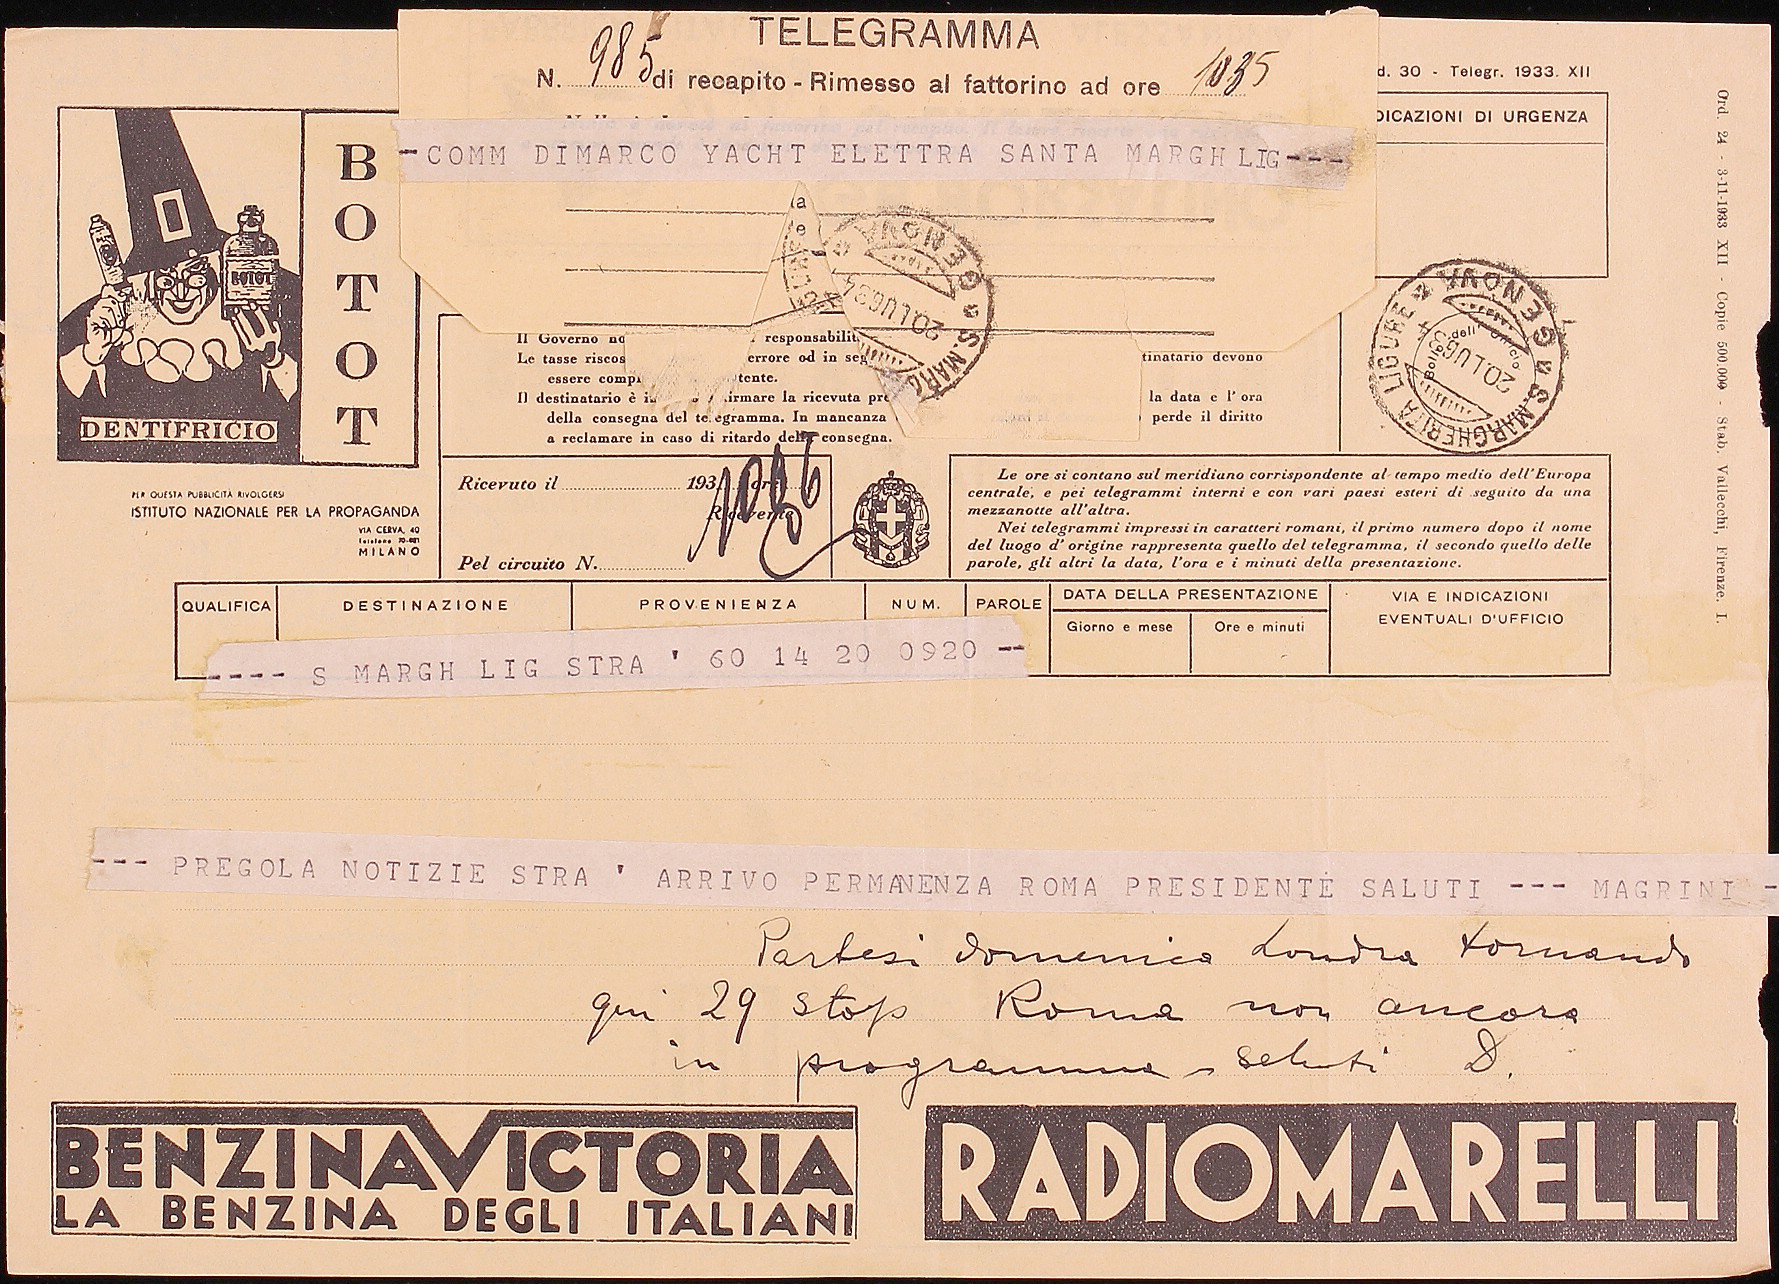 TELEGRAMMA
N. 985 di recapito - Rimesso al fattorino ad ore 1035
d. 30 - Telegr. 1933. XII
DICAZIONI DI URGENZA
-COMM DIMARCO YACHT ELETTRA SANTA MARGH LIG---
BOTOT
BOTOT
DENTIFRICIO
PER QUESTA PUBBLICITÀ RIVOLGERSI
ISTITUTO NAZIONALE PER LA PROPAGANDA
VIA CERVA, 40
Telefono 70-681
MILANO
S. MARGHERITA LIGURE * GENOVA *
Bollo dell' Ufficio
20.LUG34
S. MARG * GENOVA *
20.LUG34
Il Governo no responsabilit
Le tasse riscos errore od in seg tinatario devono
essere compl tente.
Il destinatario è irmare la ricevuta pre la data e l'ora
della consegna del telegramma. In mancanza perde il diritto
a reclamare in caso di ritardo della consegna.
Ricevuto il 193 ore
Ricevente
Pel circuito N.
Le ore si contano sul meridiano corrispondente al tempo medio dell'Europa
centrale, e pei telegrammi interni e con vari paesi esteri di seguito da una
mezzanotte all'altra.
Nei telegrammi impressi in caratteri romani, il primo numero dopo il nome
del luogo d'origine rappresenta quello del telegramma, il secondo quello delle
parole, gli altri la data, l'ora e i minuti della presentazione.
QUALIFICA DESTINAZIONE PROVENIENZA NUM. PAROLE DATA DELLA PRESENTAZIONE VIA E INDICAZIONI
EVENTUALI D'UFFICIO
Giorno e mese Ore e minuti
---- S MARGH LIG STRA ' 60 14 20 0920 --
--- PREGOLA NOTIZIE STRA ' ARRIVO PERMANENZA ROMA PRESIDENTE SALUTI --- MAGRINI -
Partesi domenica Londra tornando
qui 29 stop Roma non ancora
in programma - saluti D.
BENZINA VICTORIA
LA BENZINA DEGLI ITALIANI
RADIOMARELLI
Ord. 24 - 3-11-1933 XII - Copie 500.000 - Stab. Vallecchi, Firenze. I.